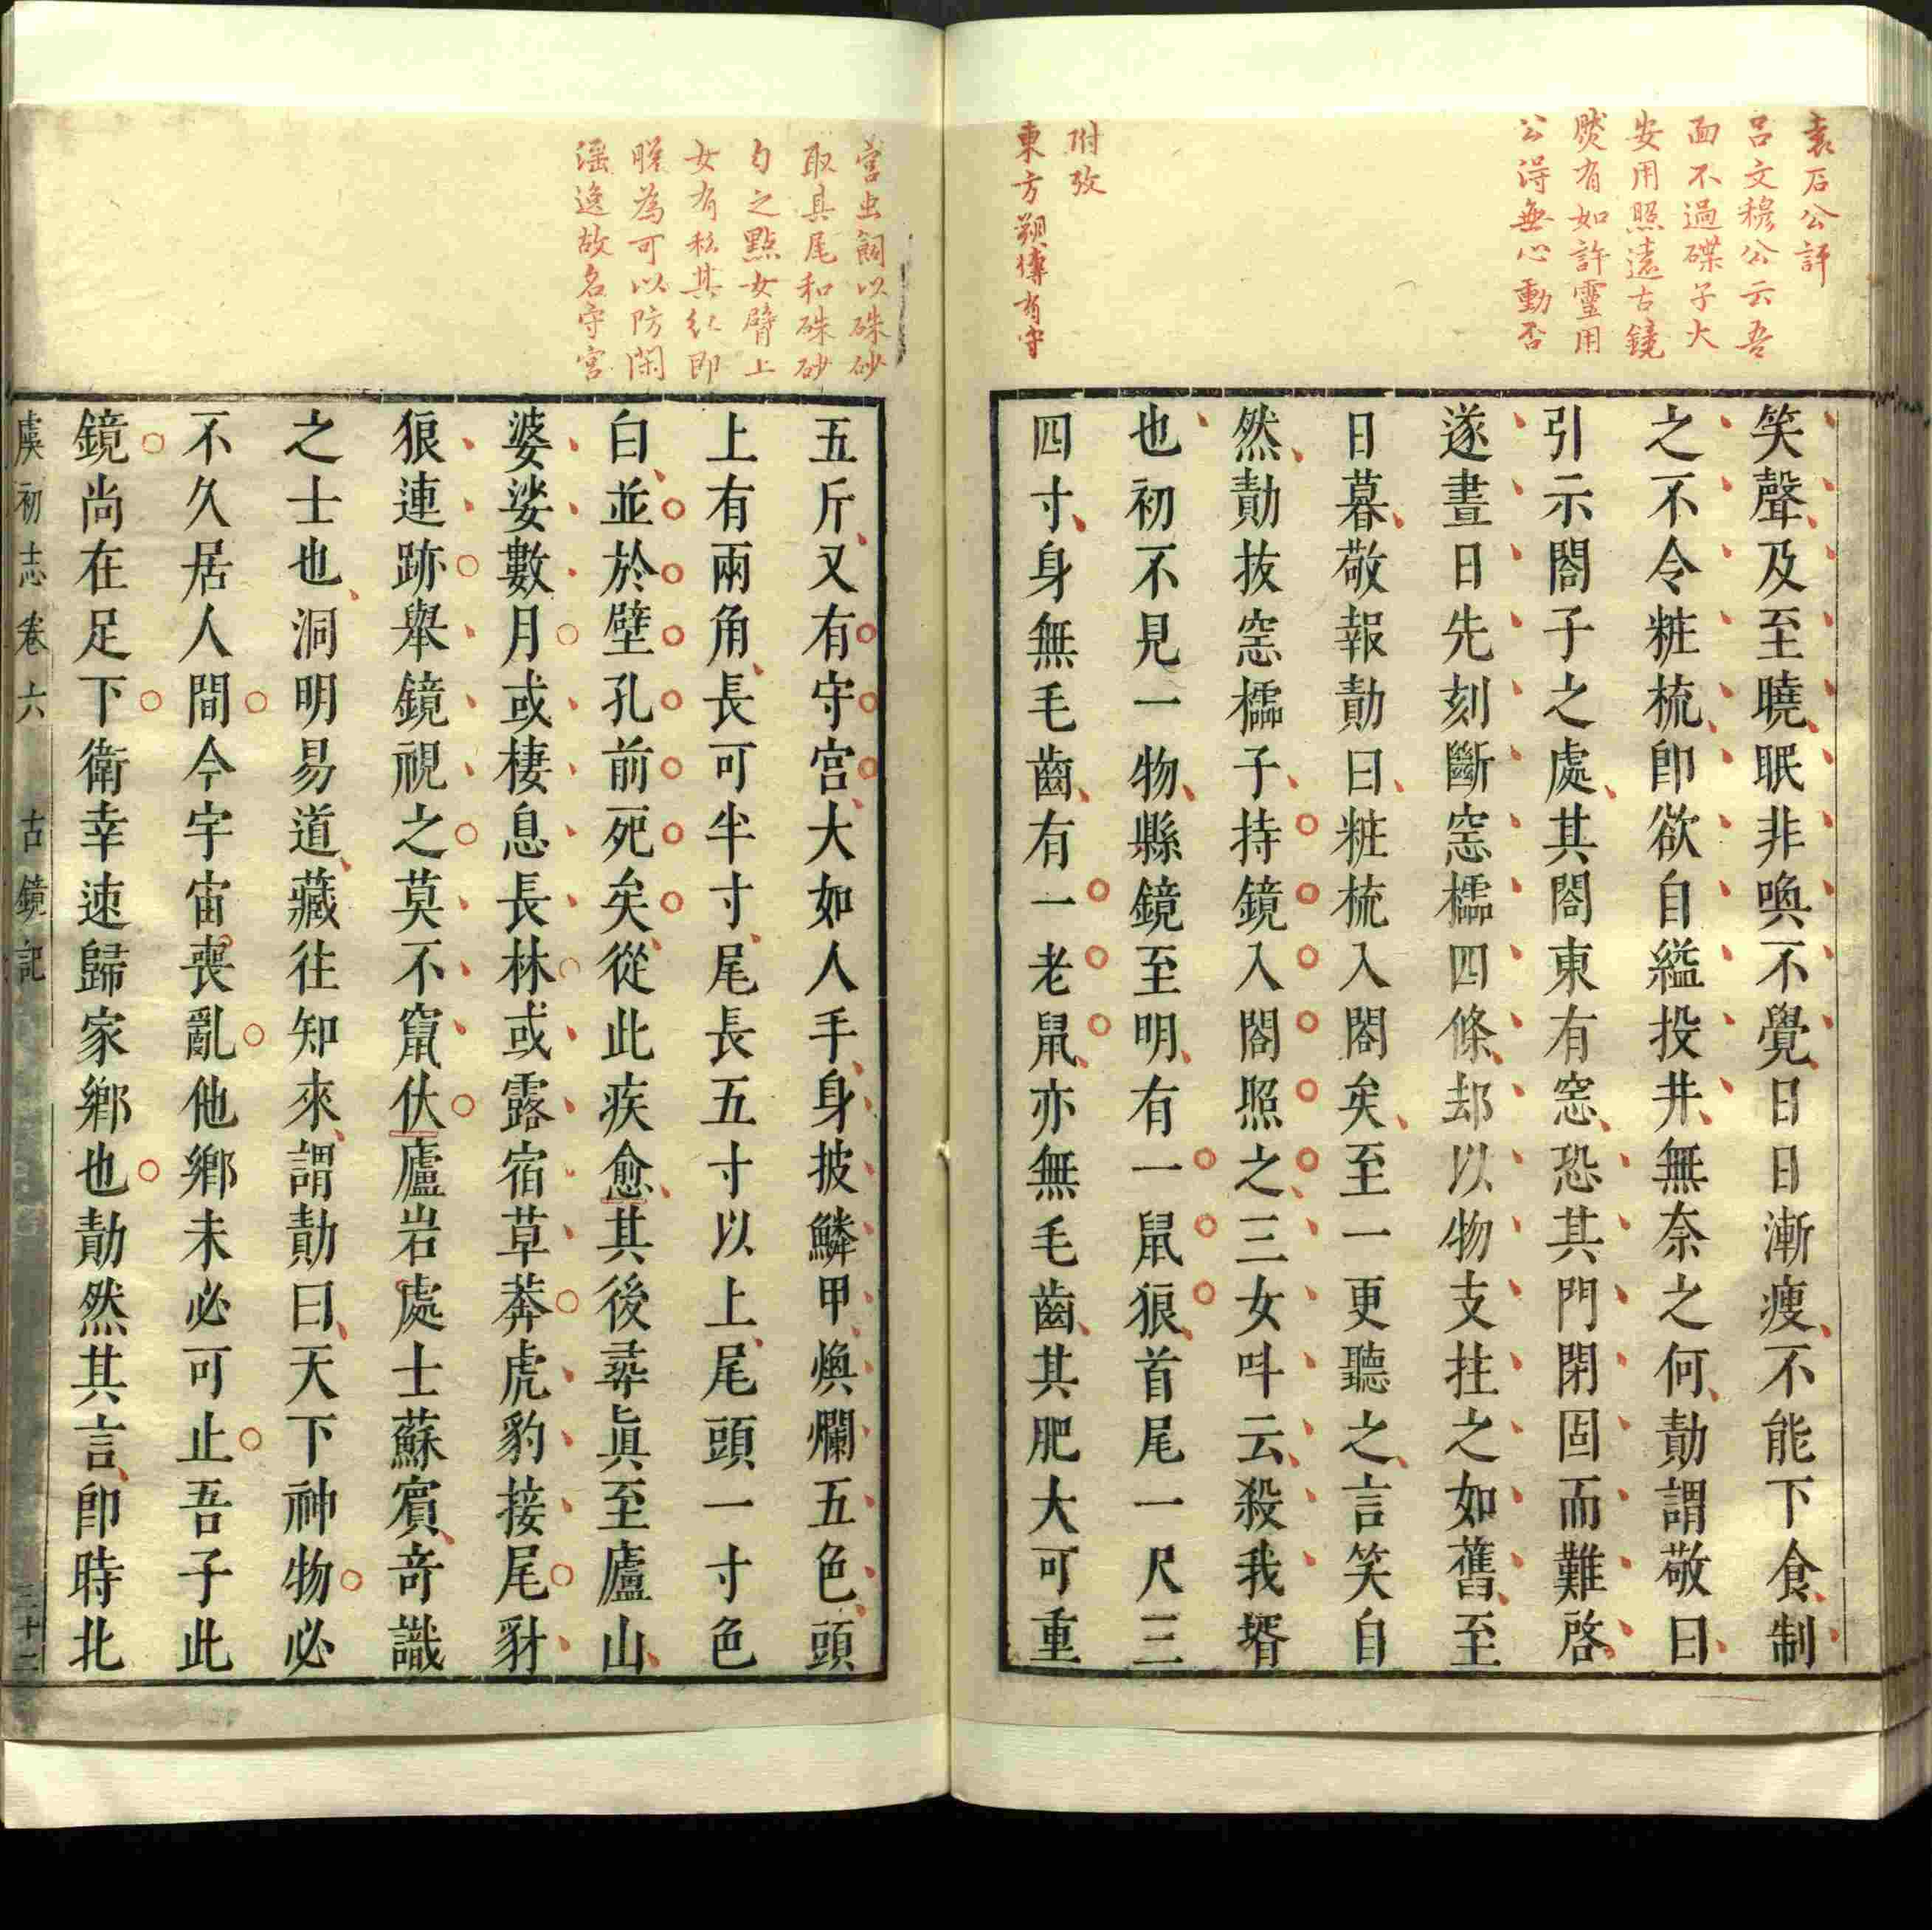 袁石公評
呂文穆公云吾
面不過碟子大
安用照遠古鏡
然有如許靈用
公得無心動否
附攷
東方朔傳有守
笑聲及至曉眠非喚不覺日日漸瘦不能下食制
之不令粧梳即欲自縊投井無奈之何勣謂敬曰
引示閤子之處其閤東有窓恐其門閉固而難啓
遂晝日先刻斷窓櫺四條却以物支拄之如舊至
日暮敬報勣曰粧梳入閤矣至一更聽之言笑自
然勣拔窓櫺子持鏡入閤照之三女呌云殺我壻
也初不見一物縣鏡至明有一鼠狼首尾一尺三
四寸身無毛齒有一老鼠亦無毛齒其肥大可重
宮虫飼以硃砂
取其尾和硃砂
勻之點女臂上
女有私其紅即
脫為可以防閑
滛逸故名守宮
五斤又有守宮大如人手身披鱗甲煥爛五色頭
上有兩角長可半寸尾長五寸以上尾頭一寸色
白並於壁孔前死矣從此疾愈其後尋眞至廬山
婆娑數月或棲息長林或露宿草莽虎豹接尾豺
狼連跡舉鏡視之莫不竄伏廬岩處士蘇賔奇識
之士也洞明易道藏往知來謂勣曰天下神物必
不久居人間今宇宙喪亂他鄉未必可止吾子此
鏡尚在足下衛幸速歸家鄉也勣然其言即時北
虞初志卷六 古鏡記 三十二